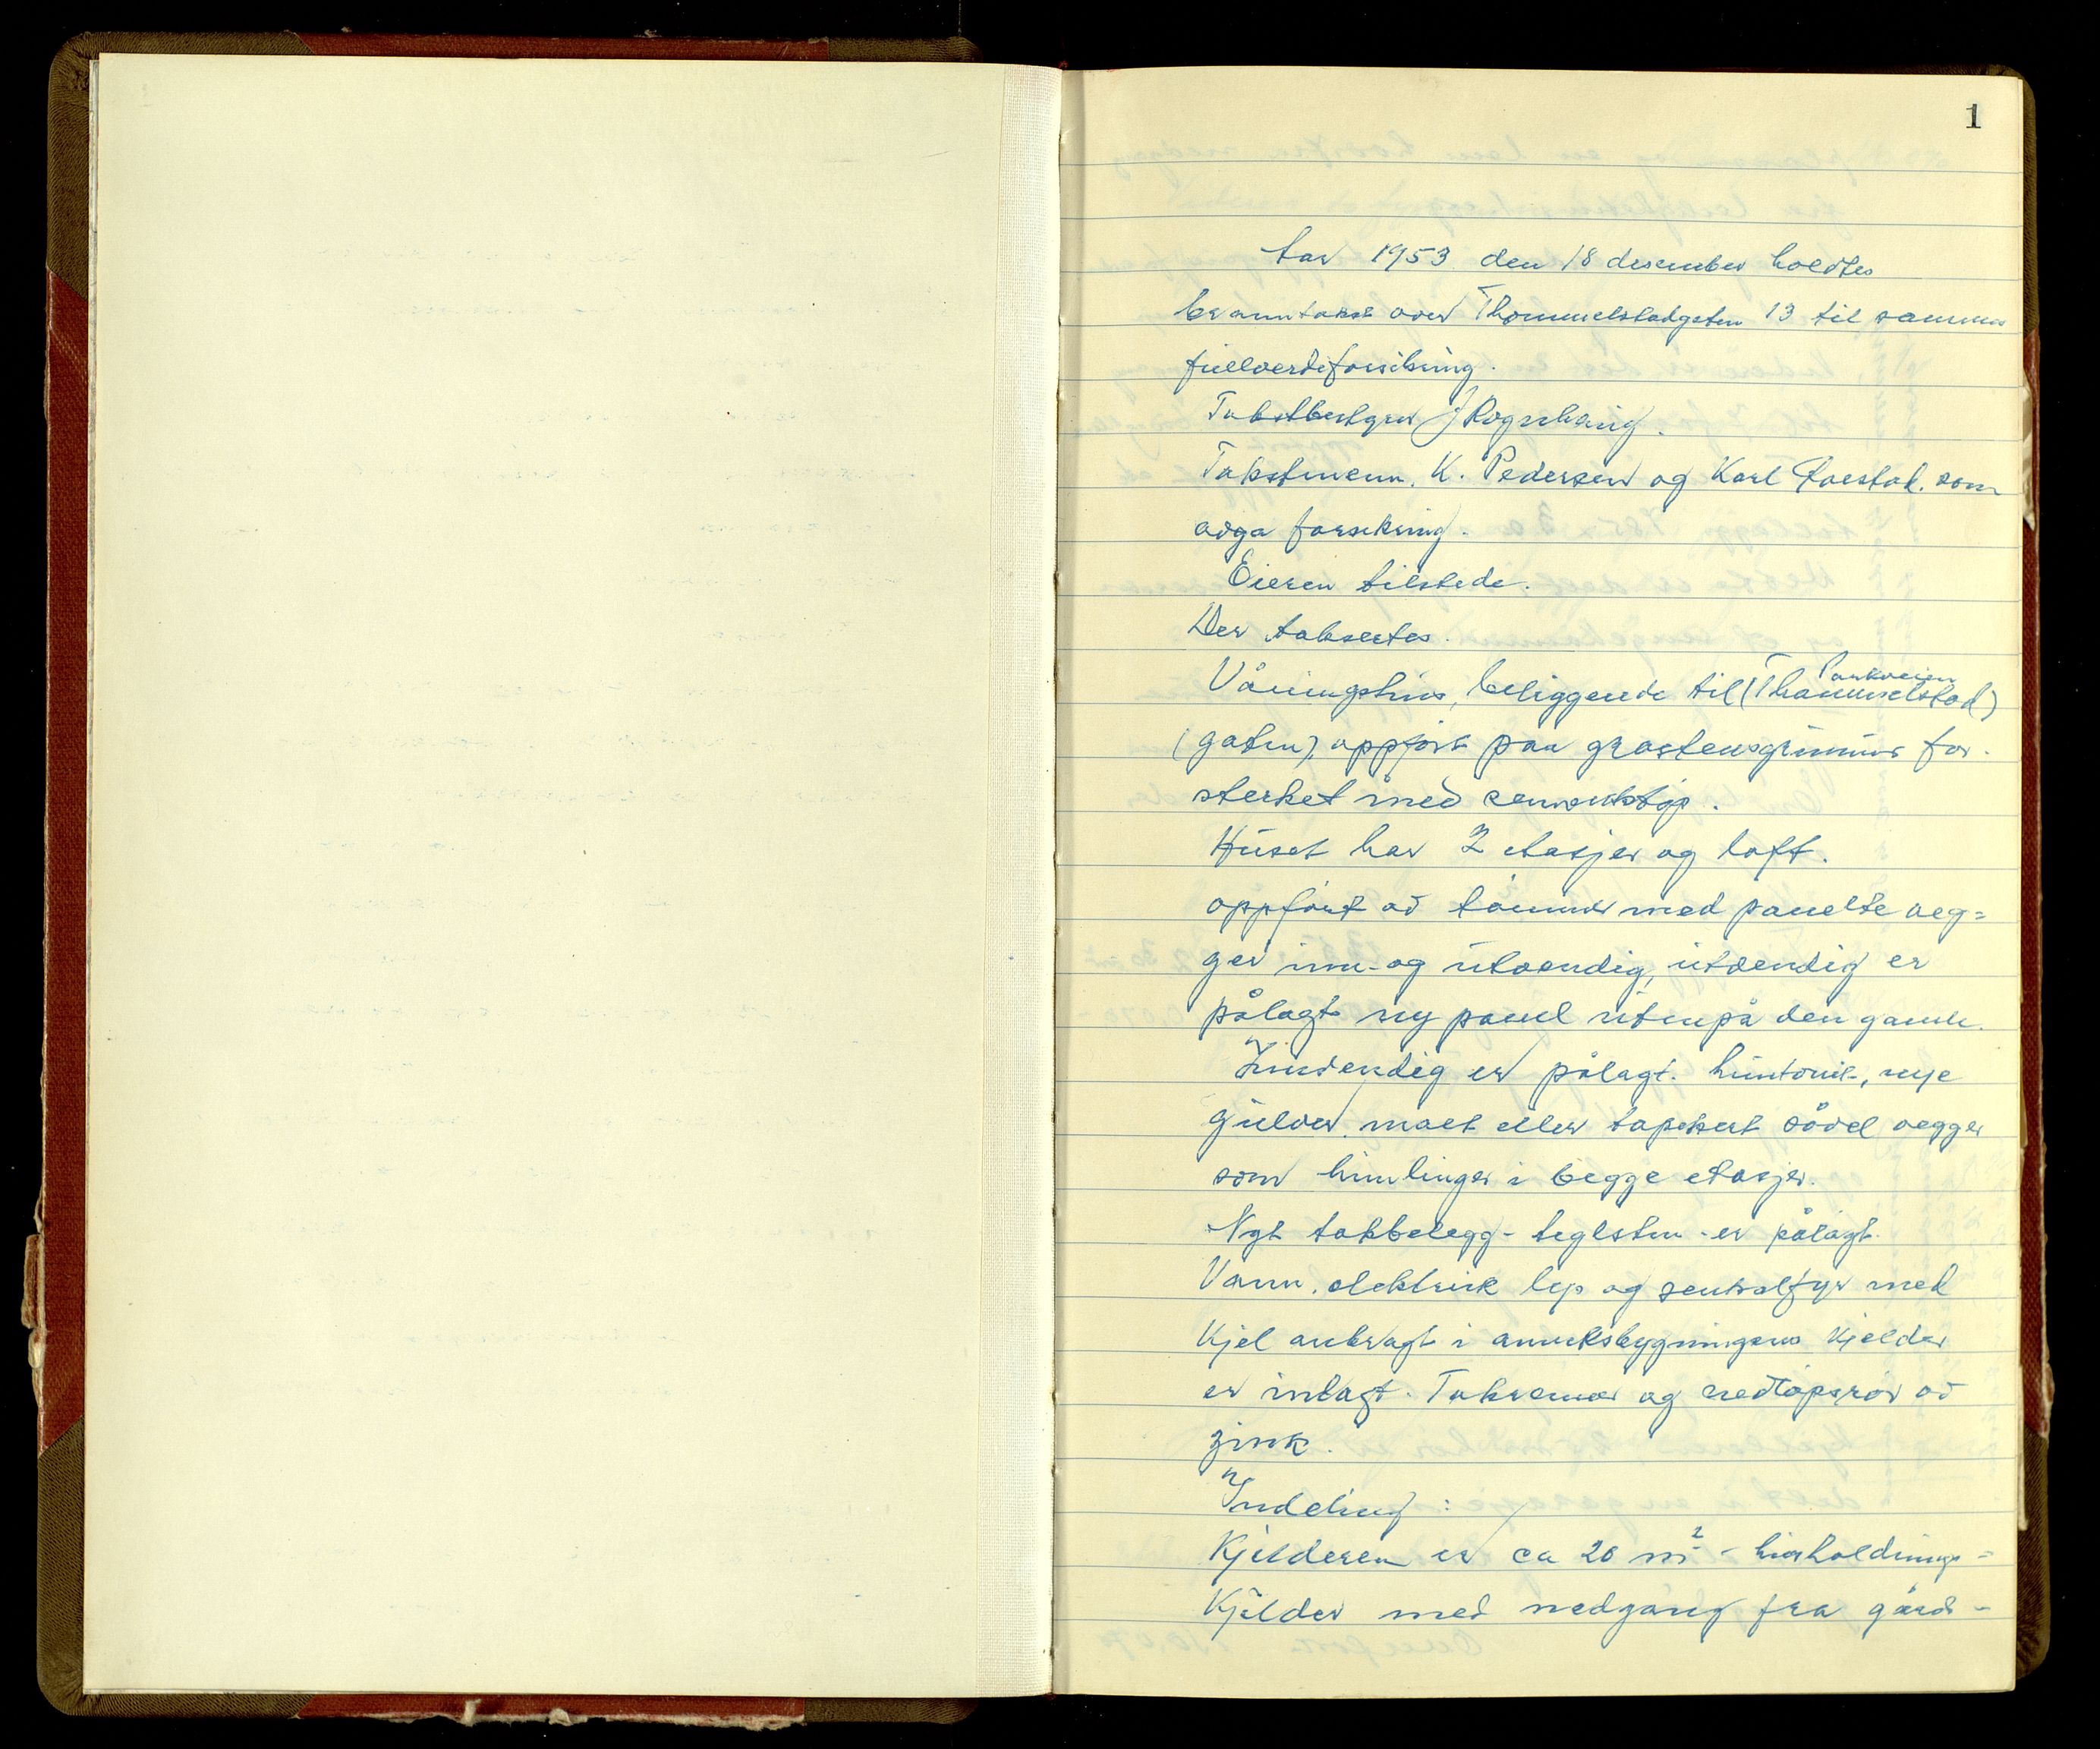 1
Aar 1953 den 18 desember holdtes
branntakst over Thommelstadgaten 13 til samme
fullverdiforsikring.
Takstbestyrer J Rognhaug.
Takstmenn. K. Pedersen og Karl som
avga forsikring.
Eieren tilstede.
Der taksertes.
Parkveien
Våningshus, beliggende til (Thommelstad)
(gaten), oppført paa gråstensgrunnur for-
sterket med sementstøp.
Huset har 2 etasjer og loft.
oppført av tømmer med panelte veg=
ger inn- og utvendig, utvendig er
pålagt ny panel utenpå den gamle.
Innvendig er pålagt. huntonit-, nye
gulver. malt eller tapetsert såvel vegger
som himlinger i begge etasjer.
Nyt takbelegg - teglsten - er pålagt.
Vann, elektrisk lys og sentralfyr med
Kjel anbragt i anneksbygningens Kjelder
er inlagt. Takrenner og nedløpsrør av
zink.
Inndeling:
Kjelderen er ca 20 m² - husholdnings=
Kjelder med nedgang fra gårds-